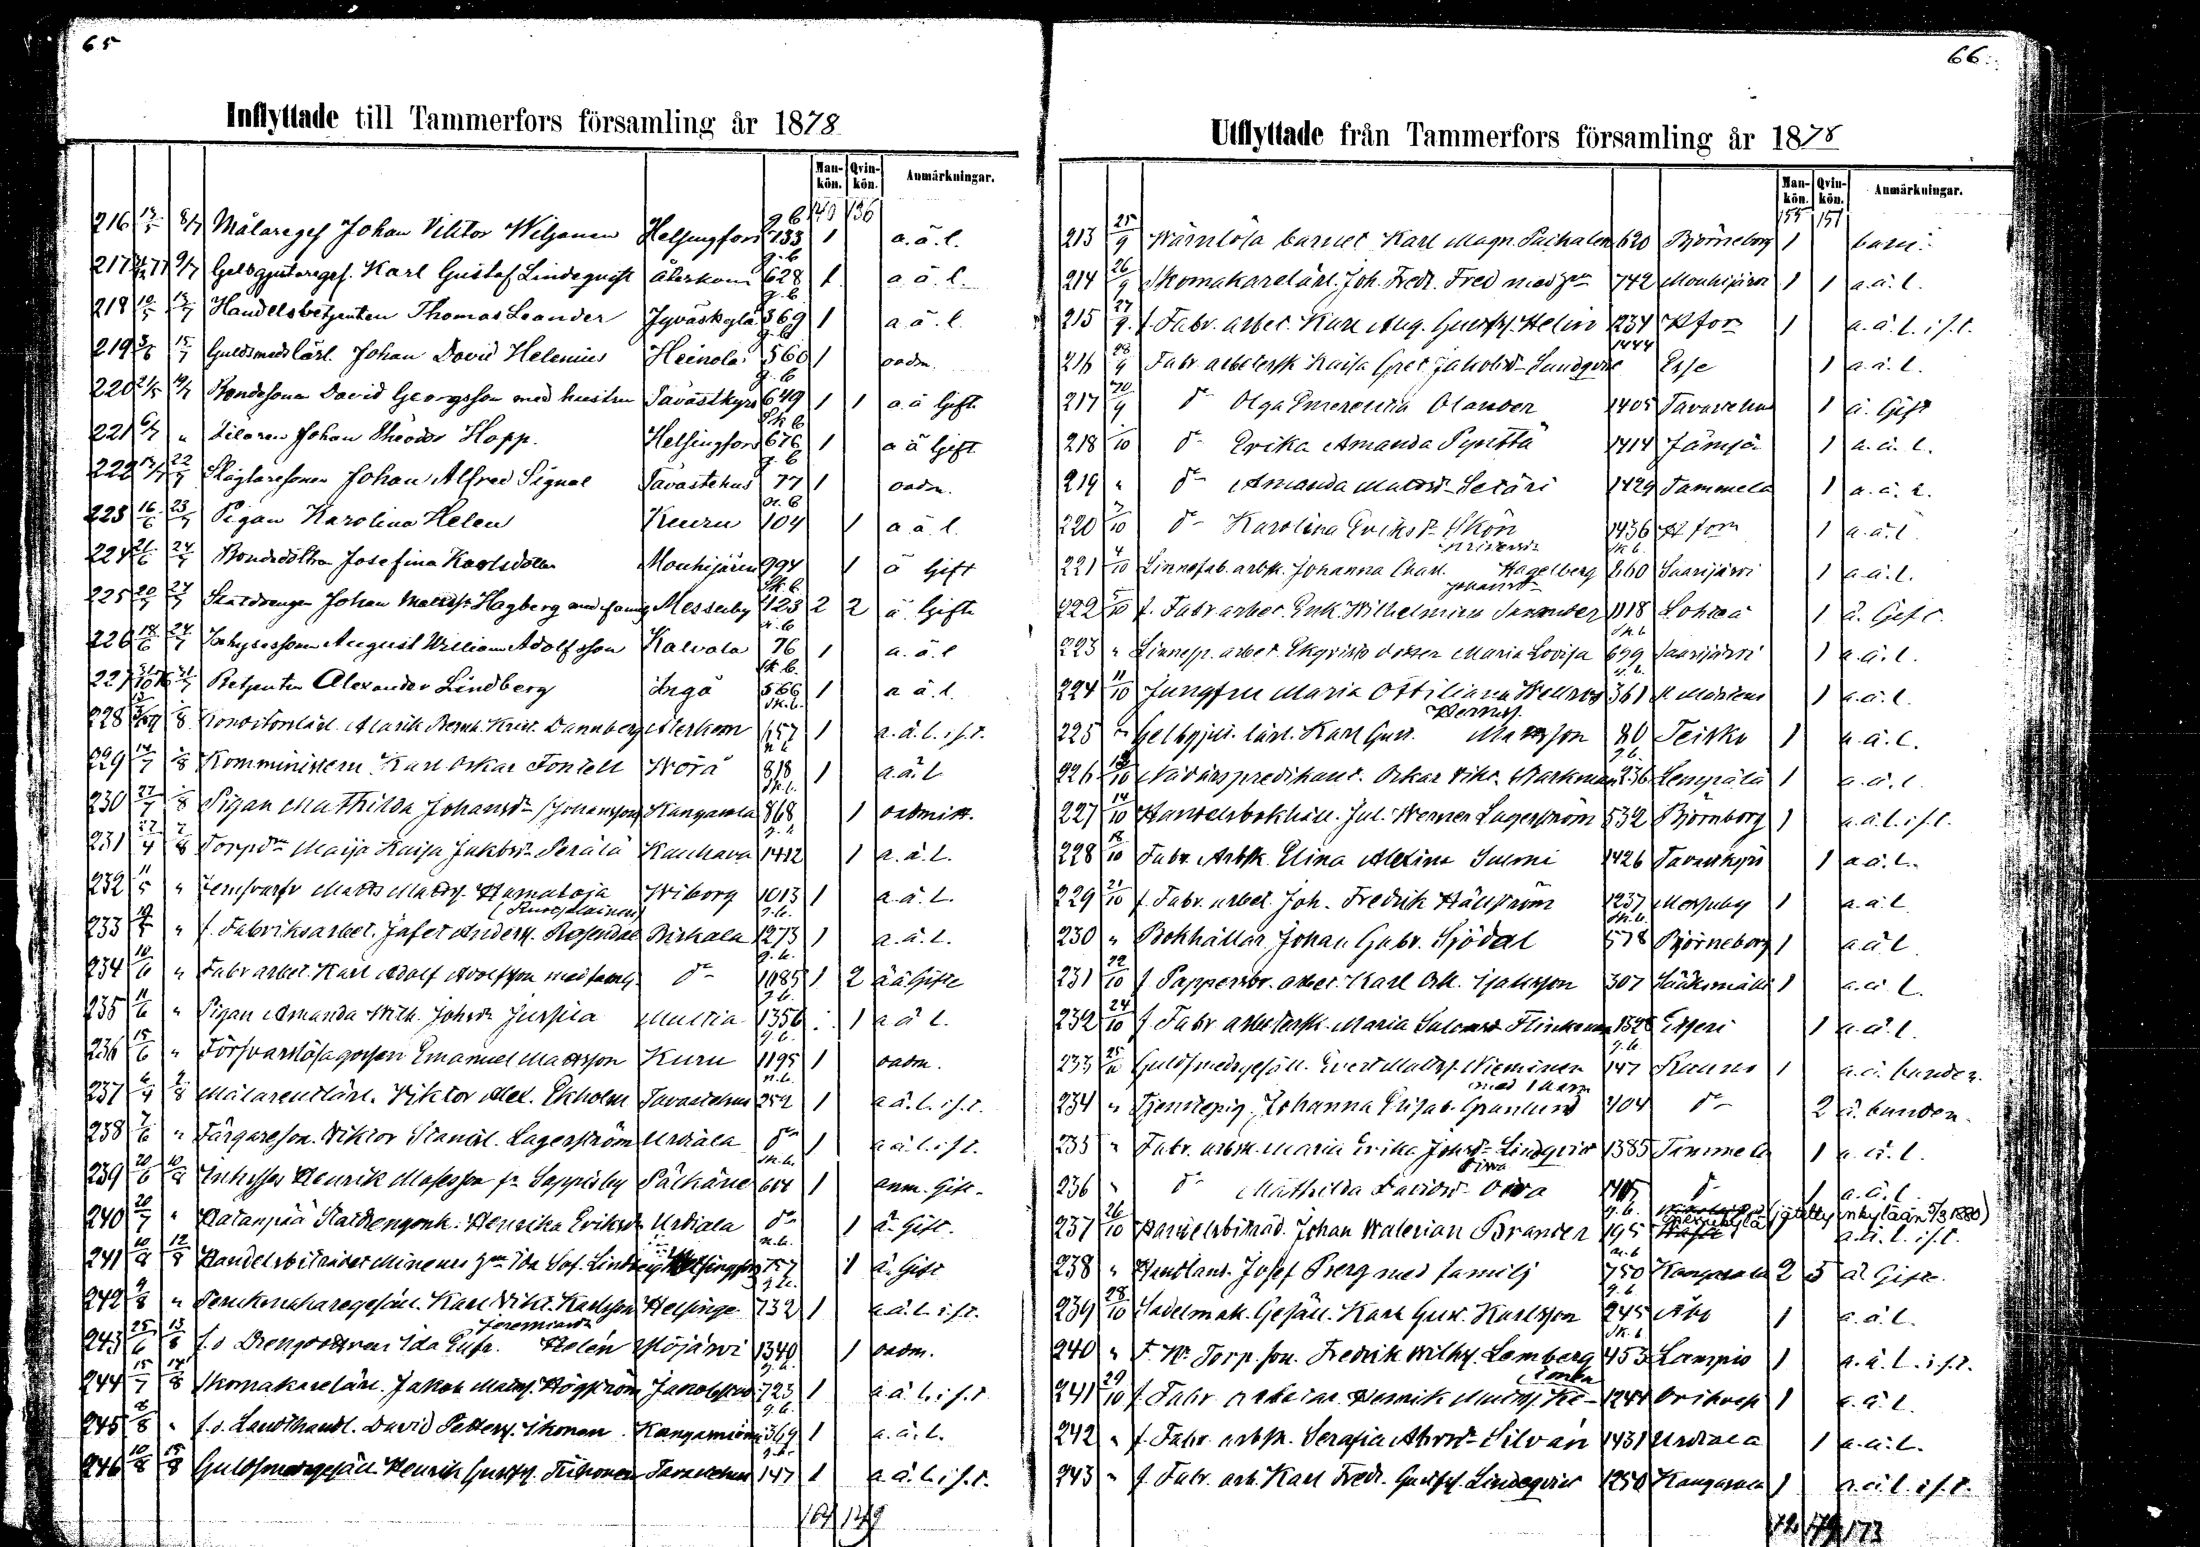 65
Inflyttade till Tammerfors församling år 1878
Mankön. Qvinkön. Anmärkningar.
140 136
216 13/5 8/7 Målareges Johan Viktor Wiljanen Helsingfors g. b. 133 1 a. ä. l.
217 9/7 Gelbgjutareges. Karl Gustaf Lindeqvist återkom g. b. 628 1 a. ä. l.
218 10/5 13/7 Handelsbetjenten Thomas Leander Jyväskylä g. b. 369 1 a. ä. l.
219 3/6 15/7 Guldsmedslärl. Johan David Helenius Heinola g. b. 560 1 oadm.
220 21/5 19/7 Bondesonen David Georgsson med hustru Tavastkyro g. b. 649 1 1 a ä Gift
221 6/7 " Johan Theodor Hopp. Helsingfors Sk b 676 1 a ä Gift
222 22/7 Johan Alfred Signal Tavastehus g. b. 77 1 oadm.
223 16/6 23/7 Pigan Karolina Helen Keuru n. b. 104 1 a ä l.
224 21/6 24/7 Bondedottren Josefina Karlsdotter Mouhijärvi 994 1 ä Gift
225 20/7 24/7 Johan Matts. Hagberg med familj Messuby Sk b. 123 2 2 ä. Gift
226 18/6 24/7 Inhysessonen August William Adolfsson Kalvola n. b 76 1 a. ä. l
227 31/7 Betjenten Alexander Lindberg Ingå Sk b. 566 1 a ä. l.
228 /8 Alarik Bernh. Krist. Dannberg Återkom Sk. b. 657 1 a. ä. l. i s. t.
229 14/7 /8 Komministern Karl Oskar Fontell Wörå n. b. 818 1 a. ä. l
230 27/7 /8 Pigan Mathilda Johansdr (Johansson) Kangasala Sk. b. 868 1 oadmitt.
231 27/4 7/8 Maija Kaisa Jakobsdr Perälä Kauhava 1412 1 a. ä. l.
232 11/5 " Matts Matts. Hamaloja Wiborg 1013 1 a. ä. l.
233 " f. Fabriksarbet. Jafet Anders. Rosendal Birkala g. b. 1273 1 a. ä. l.
234 10/6 " Fabr arbet. Karl Adolf Adolfsson med familj do g. b. 1085 1 2 ä ä Gift
235 11/6 " Pigan Amanda Wilh. Johsdr Jussila Multia g. b. 1356 1 a ä l.
236 15/6 " Försvarslösa gossen Emanuel Mattsson Kuru g. b. 1195 1 oadm.
237 6/4 9/8 Målarentlärl. Viktor Alex. Ekholm Tavastehus n. b. 252 1 a ä. l. i s. t.
238 7/6 " Färgareson. Viktor Stanisl. Lagerström Urdiala do 1 a ä. l. i s. t.
239 20/6 10/8 Henrik Mosesson fr. Sappisby Pälkäne Sk. b. 604 1 anm. Gift.
240 20/7 " Henrika Eriksdr Urdiala do 1 ä. Gift.
241 10/8 12/8 Handelsbiträdet Ida Sof. n. b. 757 1 ä. Gift
242 9/8 " Perukmakaregesäll. Karl Vikt. Karlsson Helsinge g. b. 732 1 a ä. l. i s. t.
Jeremiasdr
243 25/6 13/8 f. d. Ida Gust. Helén Ylöjärvi 1340 1 oadm.
244 15/7 14/8 Skomakarelärl. Jakob Matts. Högström Jakobstad g. b. 723 1 a ä. l. i s. t.
245 8/8 " f. d. Landthandl. David Petters. Ikonen Kangasniemi g. b. 369 1 a. ä. l.
246 10/8 15/8 Guldsmedsgesäll. Henrik Gustfs. Tiihonen Tavastehus g. b. 147 1 a ä. l. i s. t.
164 149
66.
Utflyttade från Tammerfors församling år 1878
Mankön. Qvinkön. Anmärkningar.
155 151
213 25/9 Wärnlösa barnet Karl Magn. 620 Björneborg 1 barn.
214 26/9 Skomakarelärl. Joh. Fredr. Fred med hu 742 Mouhijärvi 1 1 a. ä. l.
215 27/9. f. Fabr. arbet. Karl Aug. Gustfs. Helin 234 Hfors 1 a. ä. l. i s. t.
216 28/9 Fabr. arbetersk Kaisa Gret. Jakobsdr Sundqvist 1444 Esse 1 a. ä. l.
217 30/9 do Olga Emerentia Olander 1405 Tavastehus 1 ä. Gift
218 /10 do Erika Amanda Pynttä 1414 Jämsä 1 a. ä. l.
219 " do Amanda Mattsdr Setäri 1429 Tammela 1 a. ä. l.
220 3/10 do Karolina Eriksdr Skön 1436 Hfors 1 a. ä. l
221 4/10 Linnefab. arbsk. Johanna Charl. Hagelberg Sk. b. 260 Saarijärvi 1 a. ä. l.
Johansdr
222 5/10 f. Fabr arbet. Enk. Wilhelmina Sunnber 1118 Lohtea 1 ä. Gift.
223 " Linnesp. arbet. Maria Lovisa Sk. b 699 Saarijärvi 1 a. ä. l.
224 11/10 Jungfru Maria Ottiliana n. b. 361 St Mårtens 1 a. ä. l.
225 " Gelbgjut. lärl. Karl Gust. Mattsson 80 Teisko 1 a. ä. l.
226 13/10 Nådårspredikant. Oskar Vikt. Starkman g. b. 236 Lempälä 1 a. ä. l.
227 14/10 Handelsbokhåll. Jul. Werner Lagerström 532 Björnborg 1 a. ä. l. i s. t.
228 18/10 Fabr. Arbsk. Elina Alexina Suomi 1426 Tavastkyro 1 a. ä. l.
229 21/10 f. Fabr. arbet. Joh. Fredrik Hällström 1237 Messuby 1 a. ä. l
230 " Bokhållar. Johan Gabr. Sjödal Sk. b. 578 Björneborg 1 a. ä. l
231 22/10 f. Pappersbr. arbet. Karl Osk. Isaksson 307 Sääksmäki 1 a. ä. l.
232 24/10 f. Fabr arbetersk. Maria Salomsdr Flinkman 1328 Etseri 1 a. ä. l.
233 25/10 Guldsmedsgesäll. Evert Matts. Nieminen g. b. 147 Raumo 1 a. ä. bunden.
med 1 barn
234 " Tjenstepig. Johanna Elisab. Granlund 404 do 2 ä. bunden.
235 " Fabr. arbsk. Maria Erika Johsdr Lindqvist 1385 Tammela 1 a. ä. l.
236 " do Mathilda Davidsdr Oiva do 1 a. ä. l.
237 26/10 Handelsbiträd. Johan Walerian Brander g. b. 195 Messukylä (jätetty nkylään 5/3 1880) a. ä. l. i s. t.
238 " Handland. Josef Berg med familj n. b 750 Kangasala 2 5 ä. Gift.
239 28/10 Sadelmak. Gesäll. Karl Gust. Karlsson g. b. 245 Åbo 1 a. ä. l.
240 " Torp. son. Fredrik Wilhs. Lemberg Sk. b 453 Lampis 1 a. ä. l. i s. t.
241 29/10 f. Fabr arbetar. Henrik Matts. 1244 Orihvesi 1 a. ä. l.
242 " f. Fabr. arbsk. Serafia Abrsdr Silván 1431 Urdiala 1 a. ä. l.
243 " f. Fabr. arb. Karl Fredr. Gustfs. Lindeqvist 1250 Kangasala 1 a. ä. l. i s. t.
173